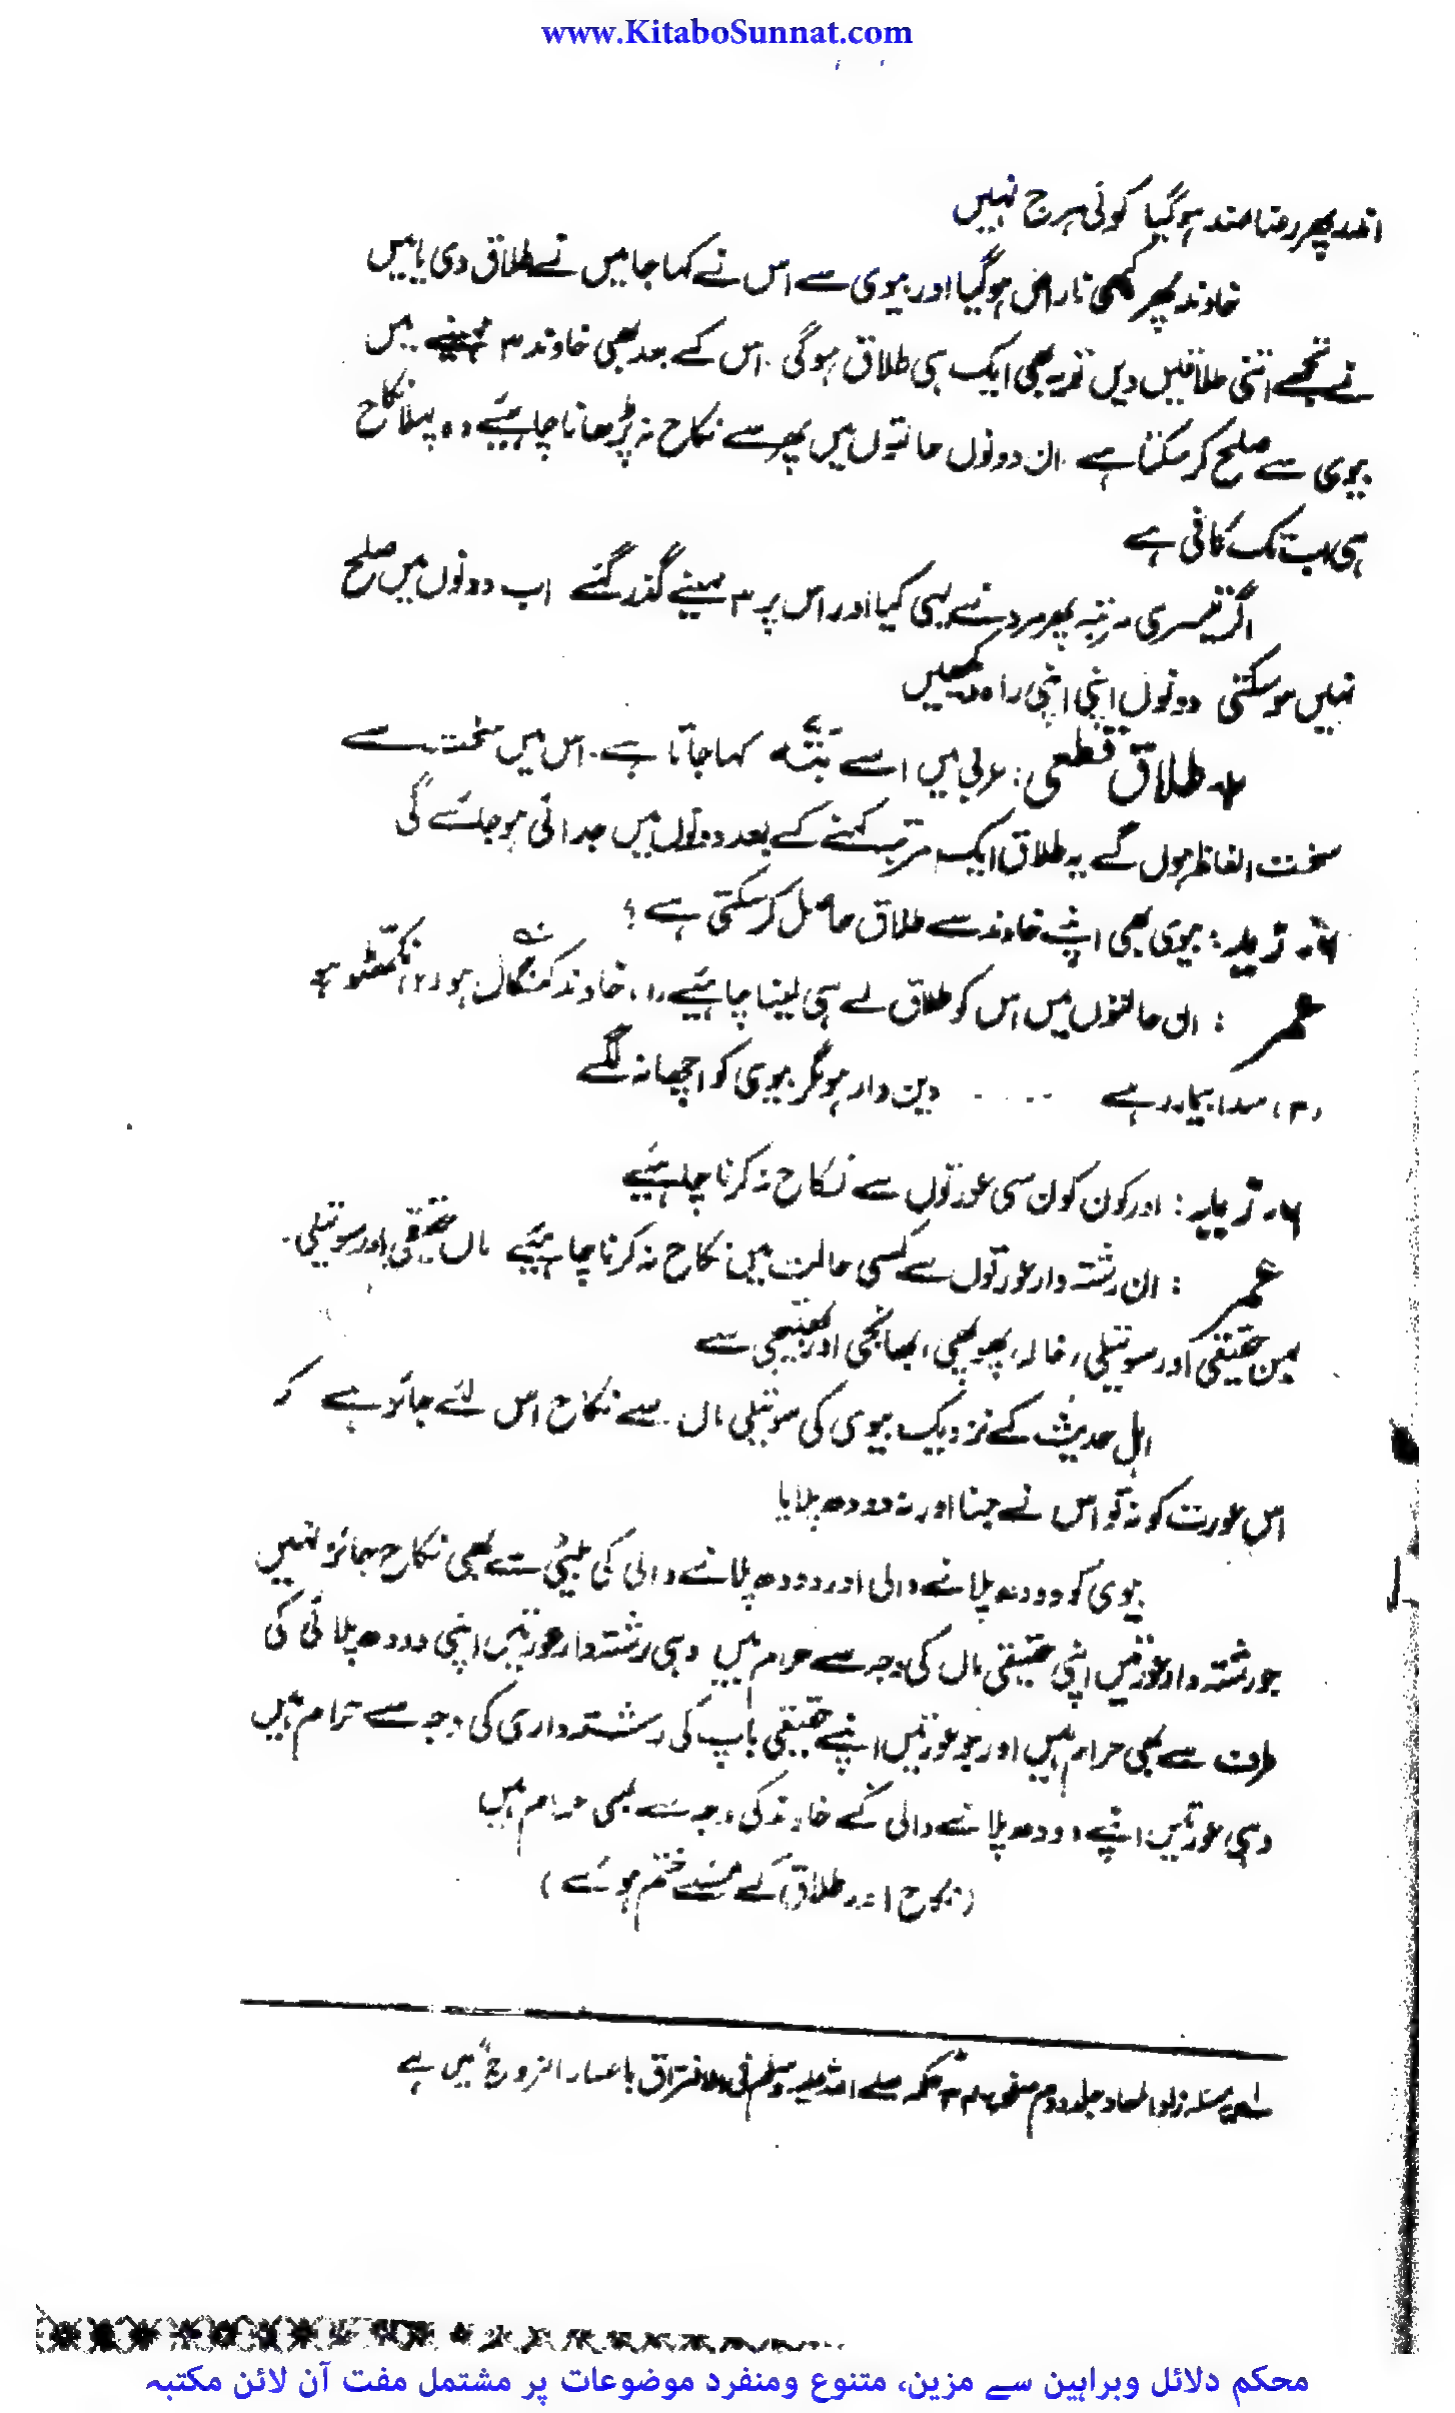 www.KitaboSunnat.com
اور پھر رضامند ہوگیا کوئی ہرج نہیں
خاوند پھر کبھی ناراض ہوگیا اور بیوی سے اس نے کہا جا میں نے طلاق دی یا میں
نے تجھے اتنی طلاقیں دیں تو یہ بھی ایک ہی طلاق ہوگی . اس کے بعد بھی خاوند ۳ مہینے میں
بیوی سے صلح کر سکتا ہے ان دونوں حالتوں میں پھر سے نکاح نہ پڑھانا چاہیئے وہ پہلا نکاح
ہی اب تک کافی ہے
اگر تیسری مرتبہ پھر مرد نے یہی کیا اور اس پر ۳ مہینے گذر گئے اب دونوں میں صلح
نہیں ہو سکتی دونوں اپنی اپنی راہ دیکھیں
طلاق قطعی : عربی میں اسے بَتّہ کہا جاتا ہے . اس میں سخت سے
سخت الفاظ ہوں گے یہ طلاق ایک مرتبہ کہنے کے بعد دونوں میں جدائی ہو جائے گی
زید : بیوی بھی اپنے خاوند سے طلاق حاصل کر سکتی ہے ؟
عمر : ان حالتوں میں اس کو طلاق لے ہی لینا چاہیئے (۱) خاوند کنگال ہو (۲) نکھٹو ہو
(۳) سدا بیمار رہے ..... دین دار ہو مگر بیوی کو اچھا نہ لگے
۶۔ زید : اور کون کون سی عورتوں سے نکاح نہ کرنا چاہیئے
عمر : ان رشتہ دار عورتوں سے کسی حالت میں نکاح نہ کرنا چاہیئے ماں حقیقی اور سوتیلی .
بہن حقیقی اور سوتیلی ، خالہ ، پھوپھی ، بھانجی اور بھتیجی سے
اہل حدیث کے نزدیک بیوی کی سوتیلی ماں سے نکاح اس لئے جائز ہے کہ
اس عورت کو نہ تو اس نے جنا اور نہ دودھ پلایا
بیوی کو دودھ پلانے والی اور دودھ پلانے والی کی بیٹی سے بھی نکاح جائز نہیں
جو رشتہ دار عورتیں اپنی حقیقی ماں کی وجہ سے حرام ہیں وہی رشتہ دار عورتیں اپنی دودھ پلائی کی
طرف سے بھی حرام ہیں اور جو عورتیں اپنے حقیقی باپ کی رشتہ داری کی وجہ سے حرام ہیں
وہی عورتیں اپنے دودھ پلانے والی کے خاوند کی وجہ سے بھی حرام ہیں
(نکاح اور طلاق کے مسئلے ختم ہوئے)
یہ مسئلہ زاد المعاد جلد دوم صفحہ حکمہ صلے اللہ علیہ وسلم فی الافتراق باعسار الزوج میں ہے
محکم دلائل وبراہین سے مزین، متنوع ومنفرد موضوعات پر مشتمل مفت آن لائن مکتبہ